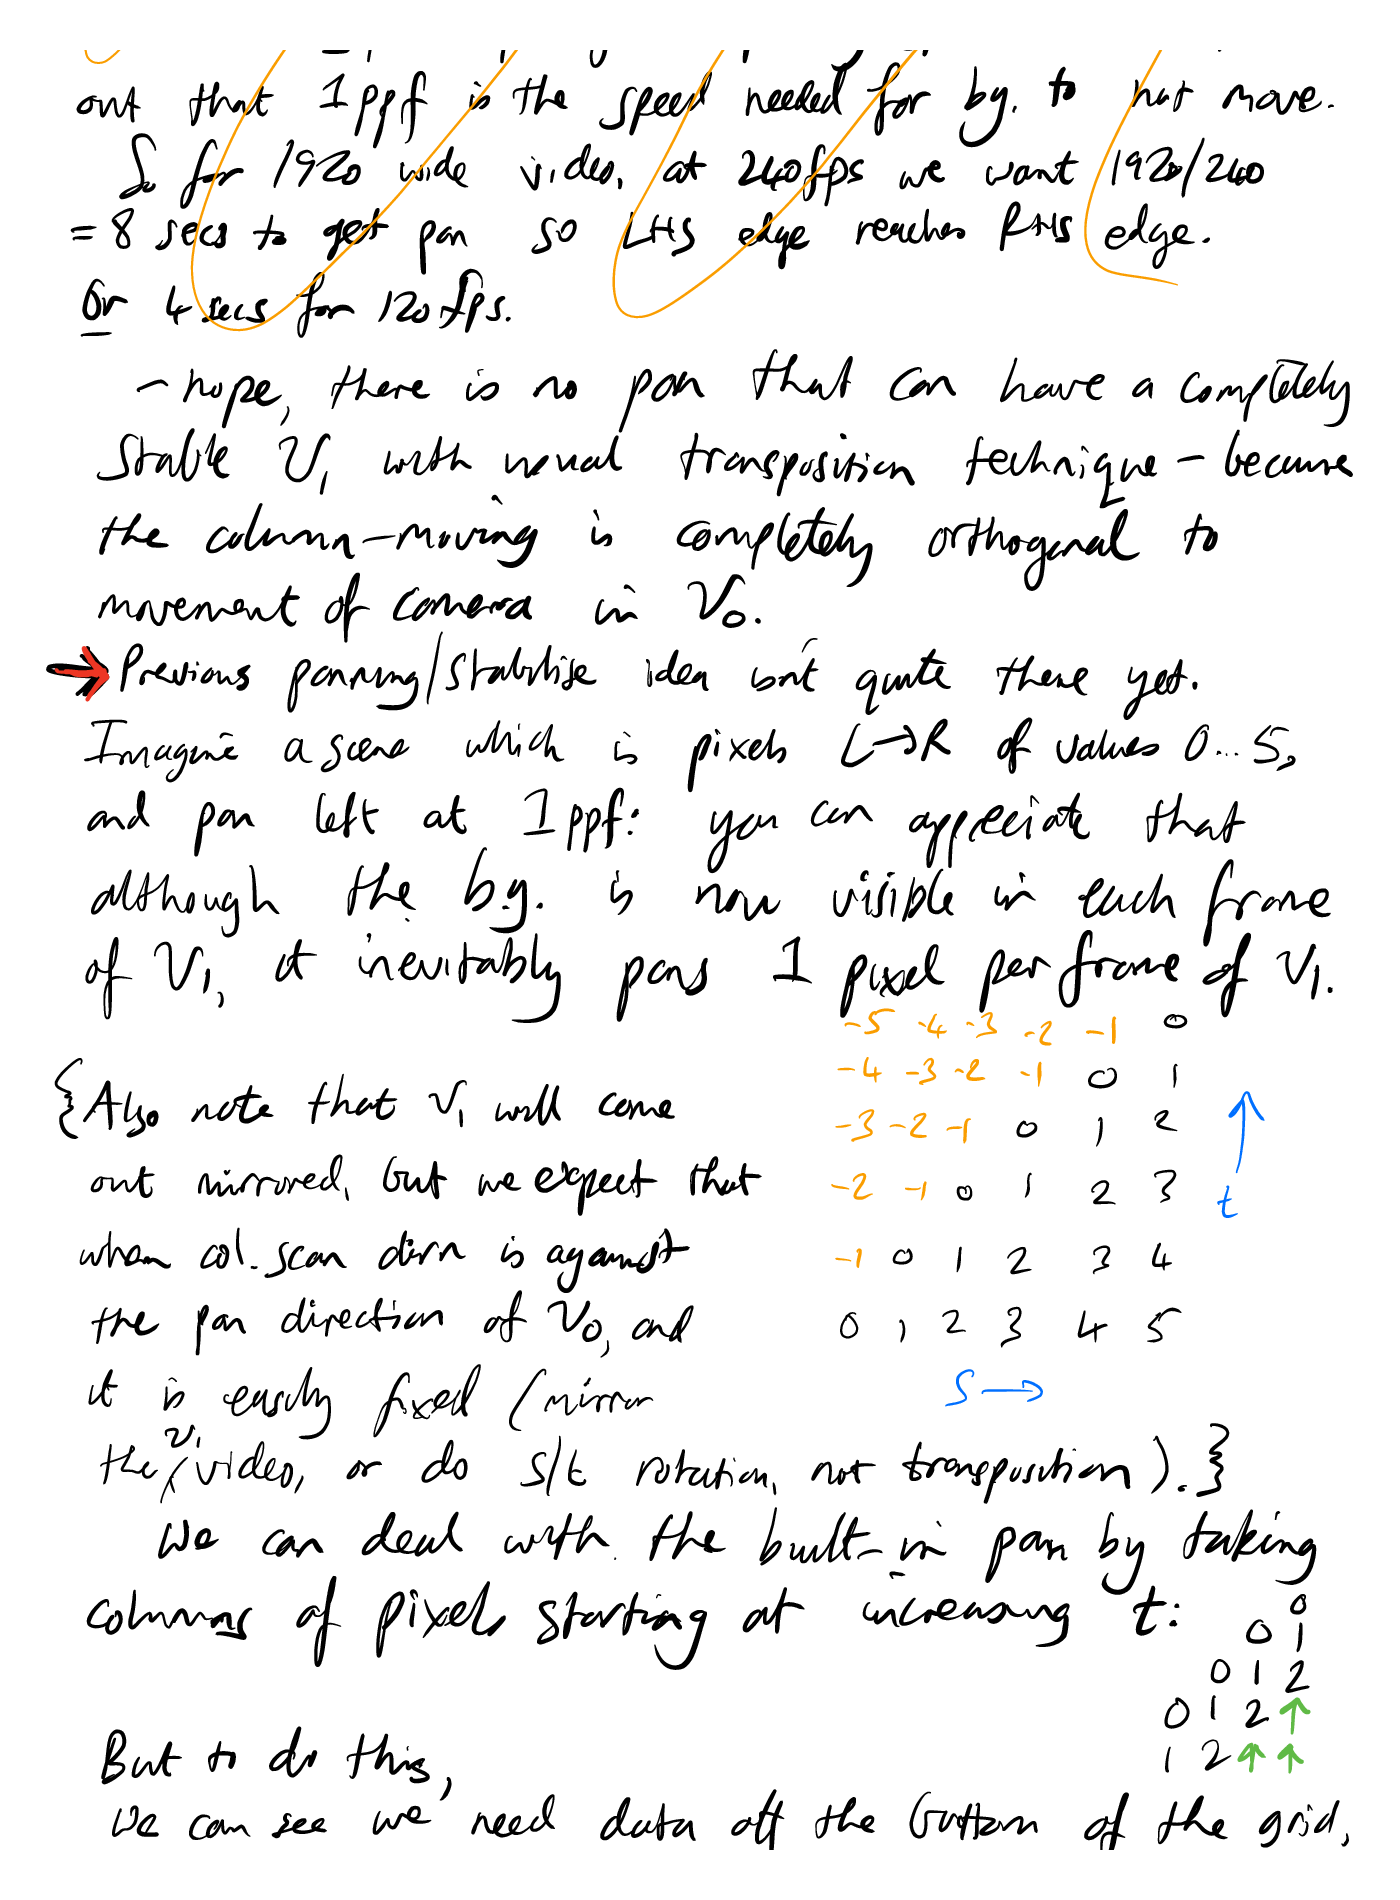 out that 1ppf is the speed needed for bg. to not move.
So for 1920 wide video, at 240fps we want 1920/240
= 8 secs to get pan so LHS edge reaches RHS edge.
Or 4 secs for 120fps.
– nope, there is no pan that can have a completely
stable V1 with usual transposition technique – because
the column-moving is completely orthogonal to
movement of camera in V0.
→ Previous panning/stabilise idea isn't quite there yet.
Imagine a scene which is pixels L→R of values 0...5,
and pan left at 1ppf: you can appreciate that
although the b.g. is now visible in each frame
of V1, it inevitably pans 1 pixel per frame of V1.
-5 -4 -3 -2 -1 0
-4 -3 -2 -1 0 1
{Also note that V1 will come
-3 -2 -1 0 1 2
out mirrored, but we expect that
-2 -1 0 1 2 3
t
when col. scan dirn is against
-1 0 1 2 3 4
the pan direction of V0, and
0 1 2 3 4 5
it is easily fixed (mirror
S →
the V1 video, or do s/t rotation, not transposition).}
We can deal with the built-in pan by taking
columns of pixels starting at increasing t:
0
0 1
0 1 2
0 1 2 ↑
1 2 ↑ ↑
But to do this,
we can see we need data off the bottom of the grid,